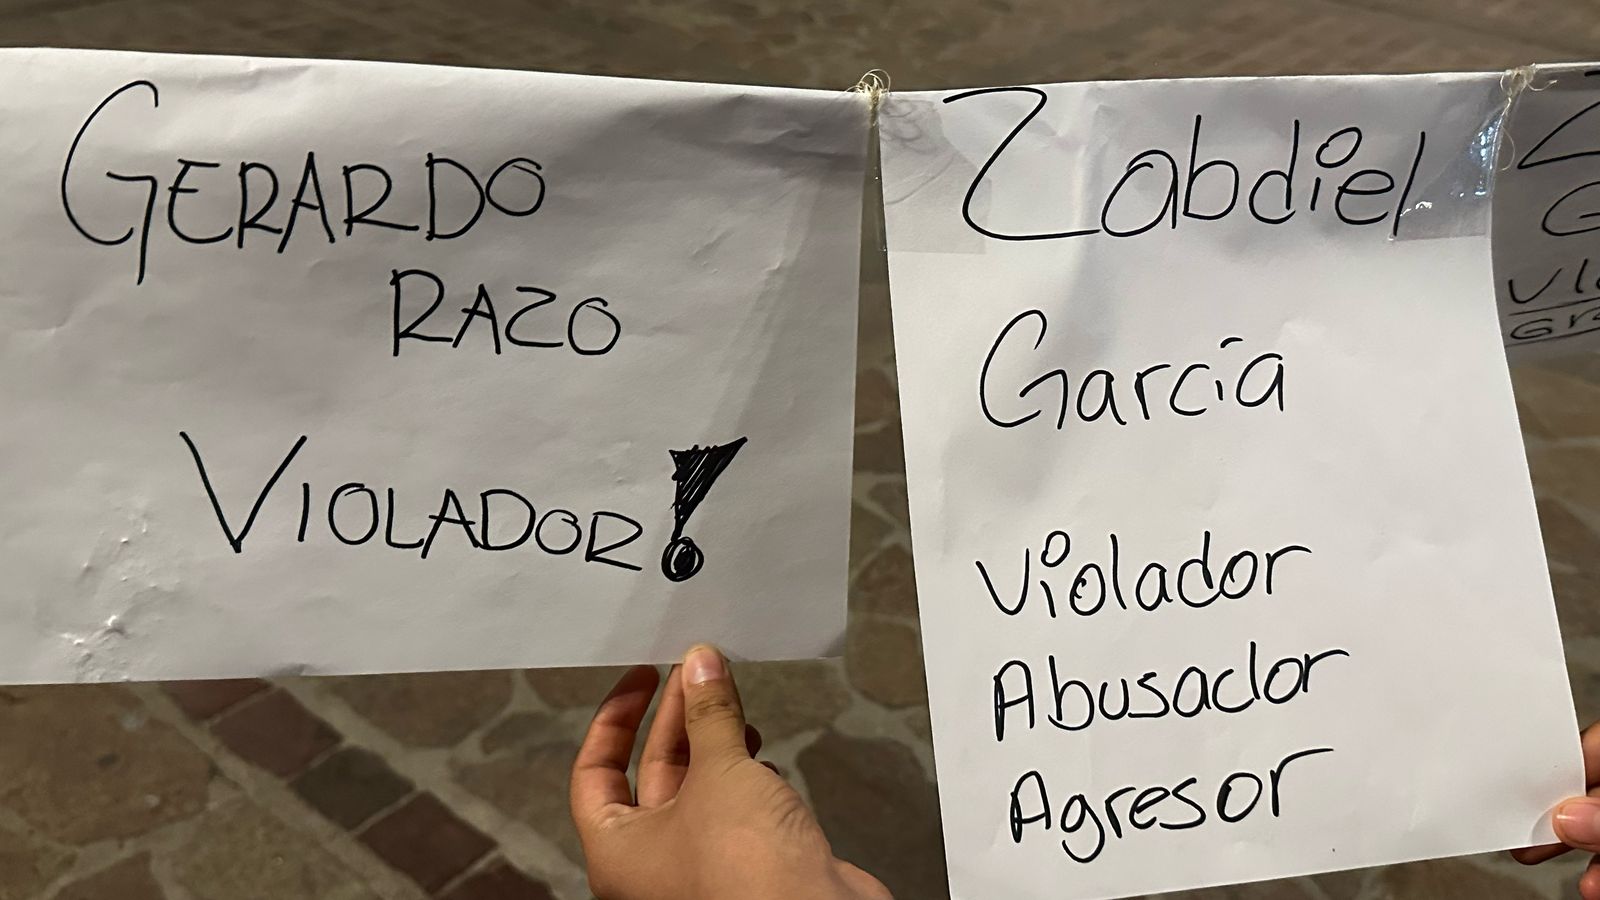 GERARDO
RAZO
VIOLADOR!
Zabdiel
García
Violador
Abusador
Agresor